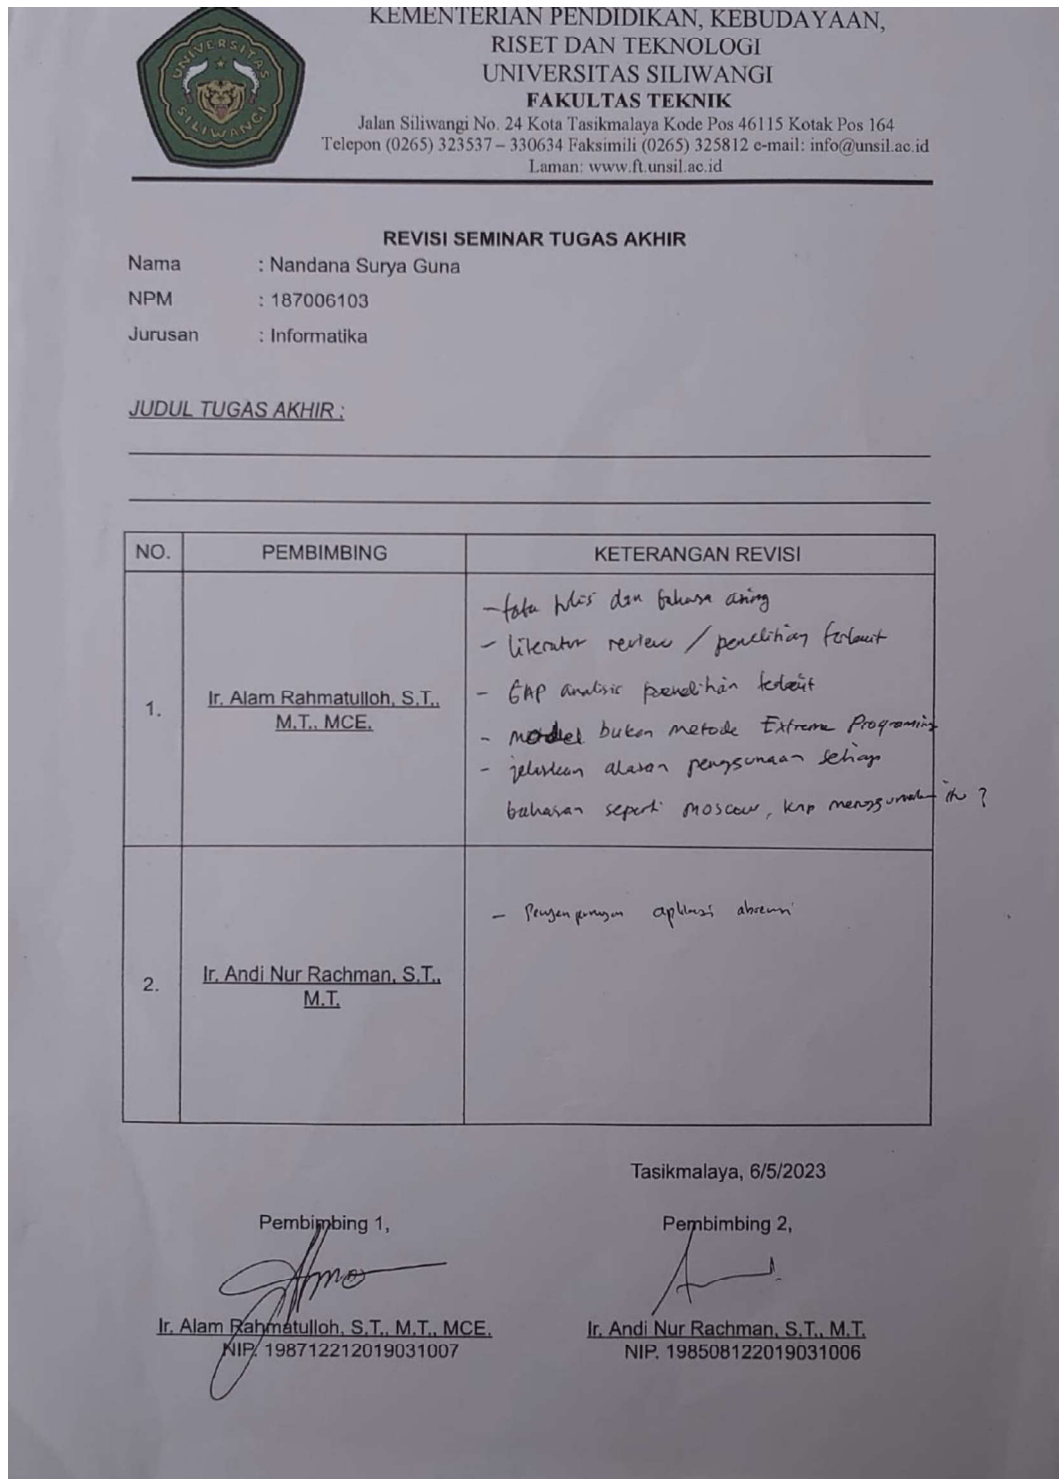 UNIVERSITAS
SILIWANGI
KEMENTERIAN PENDIDIKAN, KEBUDAYAAN,
RISET DAN TEKNOLOGI
UNIVERSITAS SILIWANGI
FAKULTAS TEKNIK
Jalan Siliwangi No. 24 Kota Tasikmalaya Kode Pos 46115 Kotak Pos 164
Telepon (0265) 323537 – 330634 Faksimili (0265) 325812 e-mail: info@unsil.ac.id
Laman: www.ft.unsil.ac.id
REVISI SEMINAR TUGAS AKHIR
Nama : Nandana Surya Guna
NPM : 187006103
Jurusan : Informatika
JUDUL TUGAS AKHIR :
NO. PEMBIMBING KETERANGAN REVISI
1. Ir. Alam Rahmatulloh, S.T.,
M.T., MCE.
- tata tulis dan bahasa asing
- literatur review / penelitian terkait
- GAP analisis penelitian terkait
- model bukan metode Extreme Programing
- jelaskan alasan penggunaan setiap
bahasan seperti moscow, knp menggunakan itu ?
2. Ir. Andi Nur Rachman, S.T.,
M.T.
- aplikasi absensi
Tasikmalaya, 6/5/2023
Pembimbing 1, Pembimbing 2,
Ir. Alam Rahmatulloh, S.T., M.T., MCE. Ir. Andi Nur Rachman, S.T., M.T.
NIP. 198712212019031007 NIP. 198508122019031006